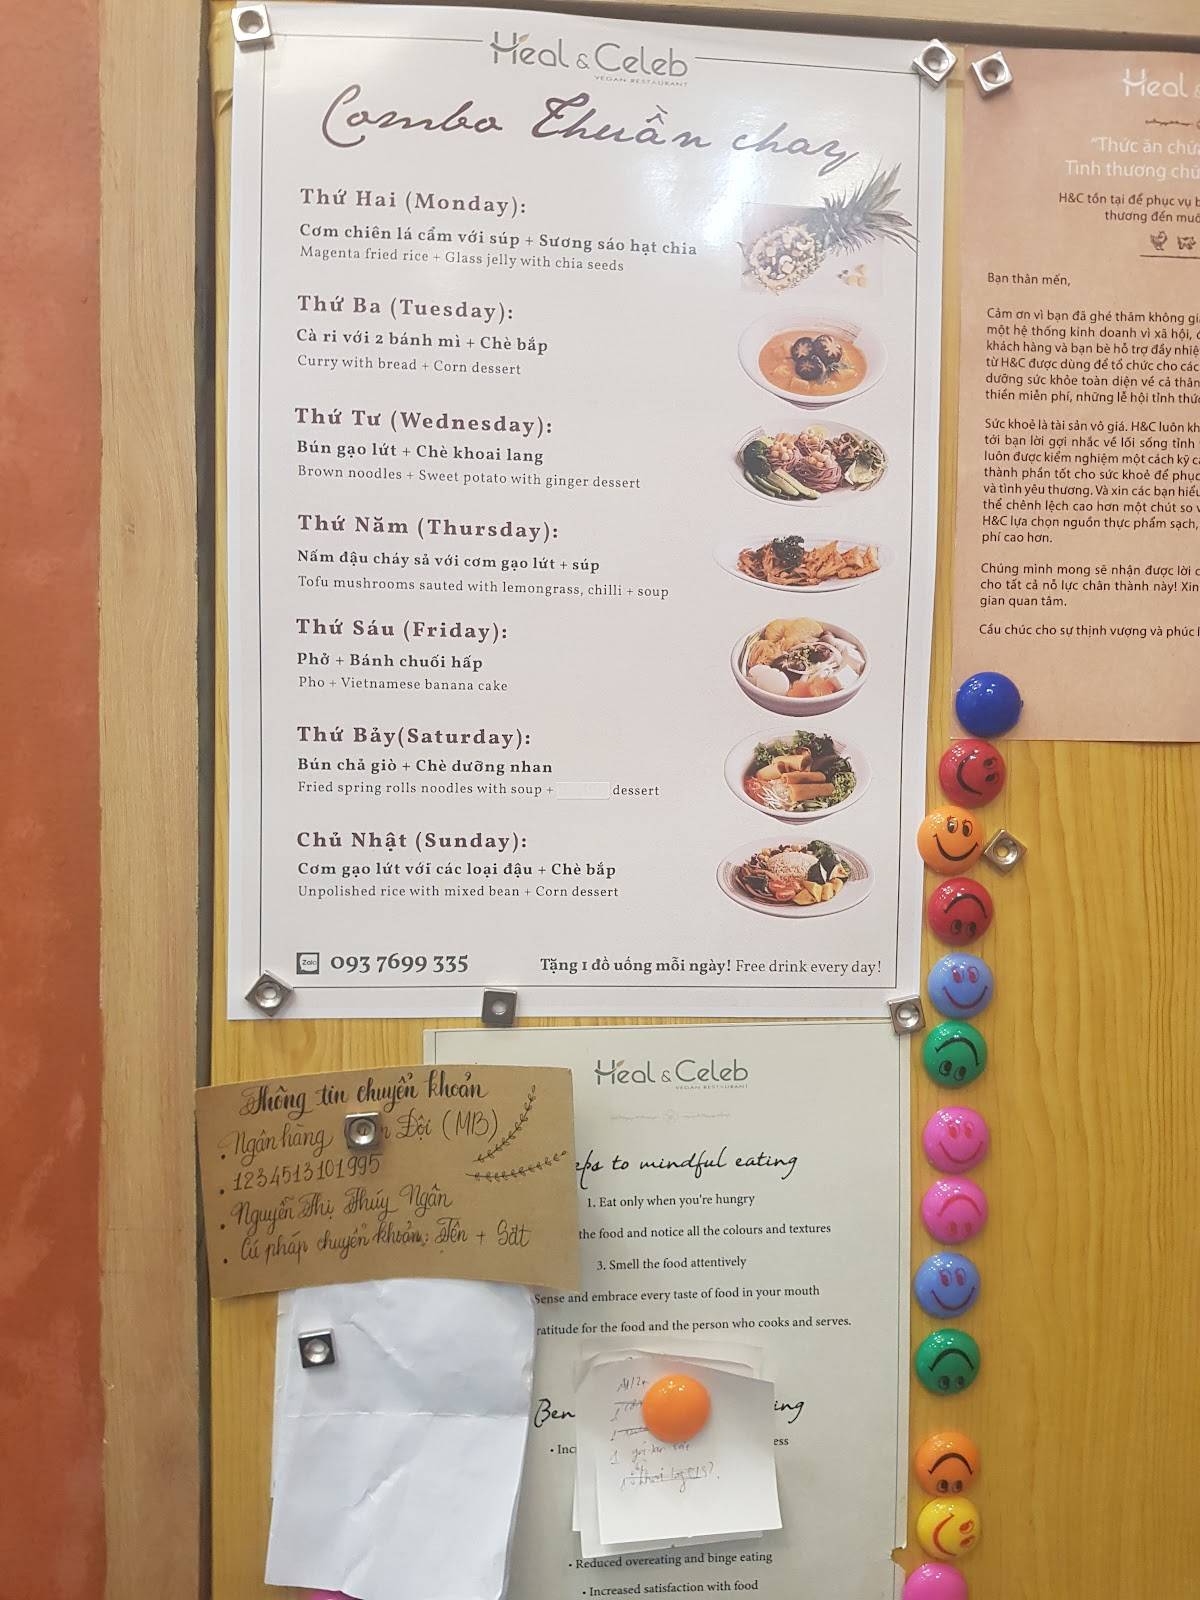 Heal & Celeb
VEGAN RESTAURANT
Combo Thuần chay
Thứ Hai (Monday):
Cơm chiên lá cẩm với súp + Sương sáo hạt chia
Magenta fried rice + Glass jelly with chia seeds
Thứ Ba (Tuesday):
Cà ri với 2 bánh mì + Chè bắp
Curry with bread + Corn dessert
Thứ Tư (Wednesday):
Bún gạo lứt + Chè khoai lang
Brown noodles + Sweet potato with ginger dessert
Thứ Năm (Thursday):
Nấm đậu cháy sả với cơm gạo lứt + súp
Tofu mushrooms sauted with lemongrass, chilli + soup
Thứ Sáu (Friday):
Phở + Bánh chuối hấp
Pho + Vietnamese banana cake
Thứ Bảy(Saturday):
Bún chả giò + Chè dưỡng nhan
Fried spring rolls noodles with soup + dessert
Chủ Nhật (Sunday):
Cơm gạo lứt với các loại đậu + Chè bắp
Unpolished rice with mixed bean + Corn dessert
Zalo 093 7699 335
Tặng 1 đồ uống mỗi ngày! Free drink every day!
Heal
"Thức ăn chứ
Tình thương chứ
H&C tồn tại để phục vụ b
thương đến muô
Bạn thân mến,
Cảm ơn vì bạn đã ghé thăm không gi
một hệ thống kinh doanh vì xã hội,
khách hàng và bạn bè hỗ trợ đầy nhiệ
từ H&C được dùng để tổ chức cho các
dưỡng sức khỏe toàn diện về cả thân
thiền miễn phí, những lễ hội tỉnh thứ
Sức khoẻ là tài sản vô giá. H&C luôn kh
tới bạn lời gợi nhắc về lối sống tỉnh
luôn được kiểm nghiệm một cách kỹ c
thành phần tốt cho sức khoẻ để phục
và tình yêu thương. Và xin các bạn hiể
thể chênh lệch cao hơn một chút so v
H&C lựa chọn nguồn thực phẩm sạch,
phí cao hơn.
Chúng mình mong sẽ nhận được lời c
cho tất cả nỗ lực chân thành này! Xin
gian quan tâm.
Cầu chúc cho sự thịnh vượng và phúc l
Thông tin chuyển khoản
• Ngân hàng Đội (MB)
• 1234513101995
• Nguyễn Thị Thúy Ngân
• Cú pháp chuyển khoản: Tên + Sđt
Heal & Celeb
VEGAN RESTAURANT
eps to mindful eating
1. Eat only when you're hungry
the food and notice all the colours and textures
3. Smell the food attentively
Sense and embrace every taste of food in your mouth
ratitude for the food and the person who cooks and serves.
Ben ing
• Inc ess
• Reduced overeating and binge eating
• Increased satisfaction with food